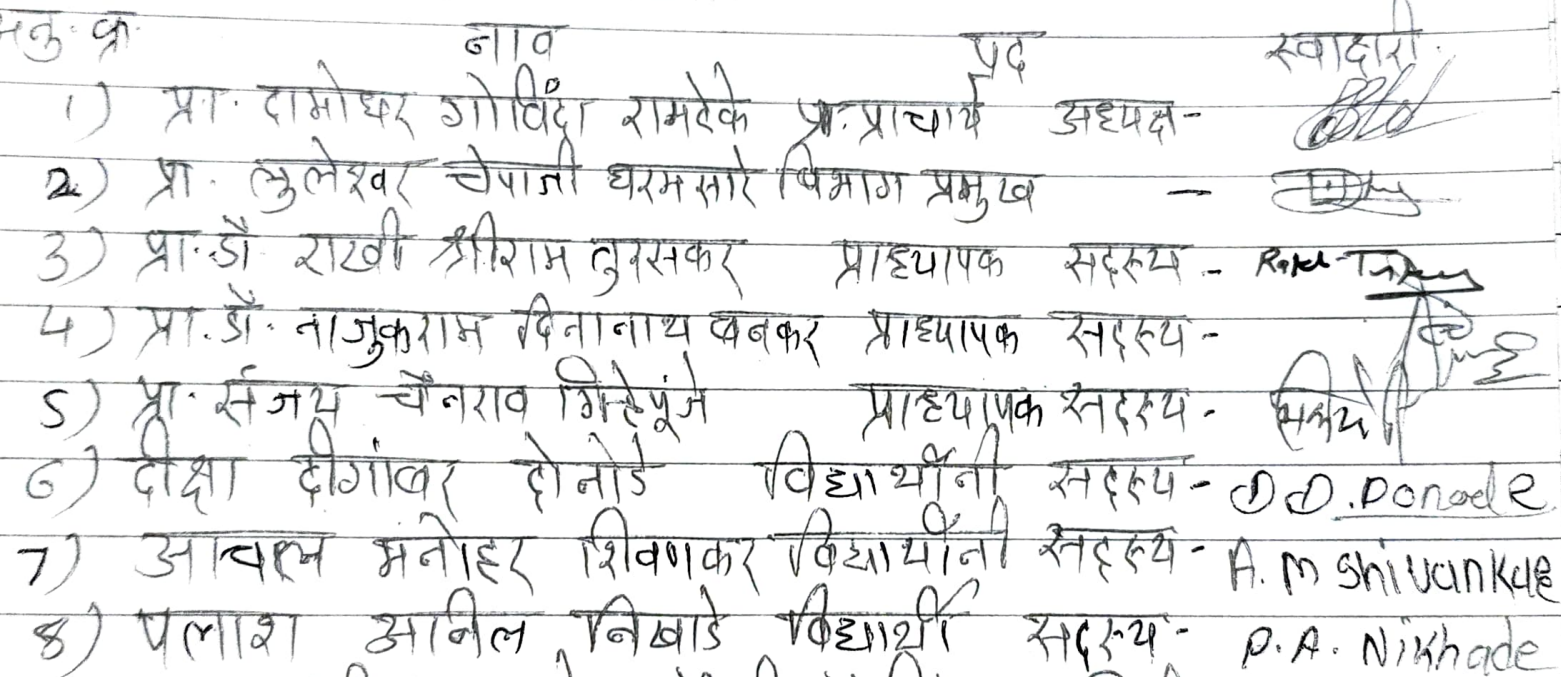 अनु. क्र. नाव पद स्वाक्षरी.
1) प्रा. दामोधर गोविंदा रामटेके प्र. प्राचार्य अध्यक्ष -
2) प्रा. लुलेश्वर चेपाजी घरमसारे विभाग प्रमुख -
3) प्रा. डॉ राखी श्रीराम तुरसकर प्राध्यापक सदस्य -
4) प्रा. डॉ. नाजुकराम दिनानाथ बनकर प्राध्यापक सदस्य -
5) प्रा. संजय चैनराव गिऱ्हेपूंजे प्राध्यापक सदस्य -
6) दीक्षा दीगांबर दोनोडे विद्यार्थीनी सदस्य - D.D. Donode
7) आचल मनोहर शिवणकर विद्यार्थीनी सदस्य - A. M Shivankar
8) पलाश अनिल निखाडे विद्यार्थी सदस्य - P. A. Nikhade